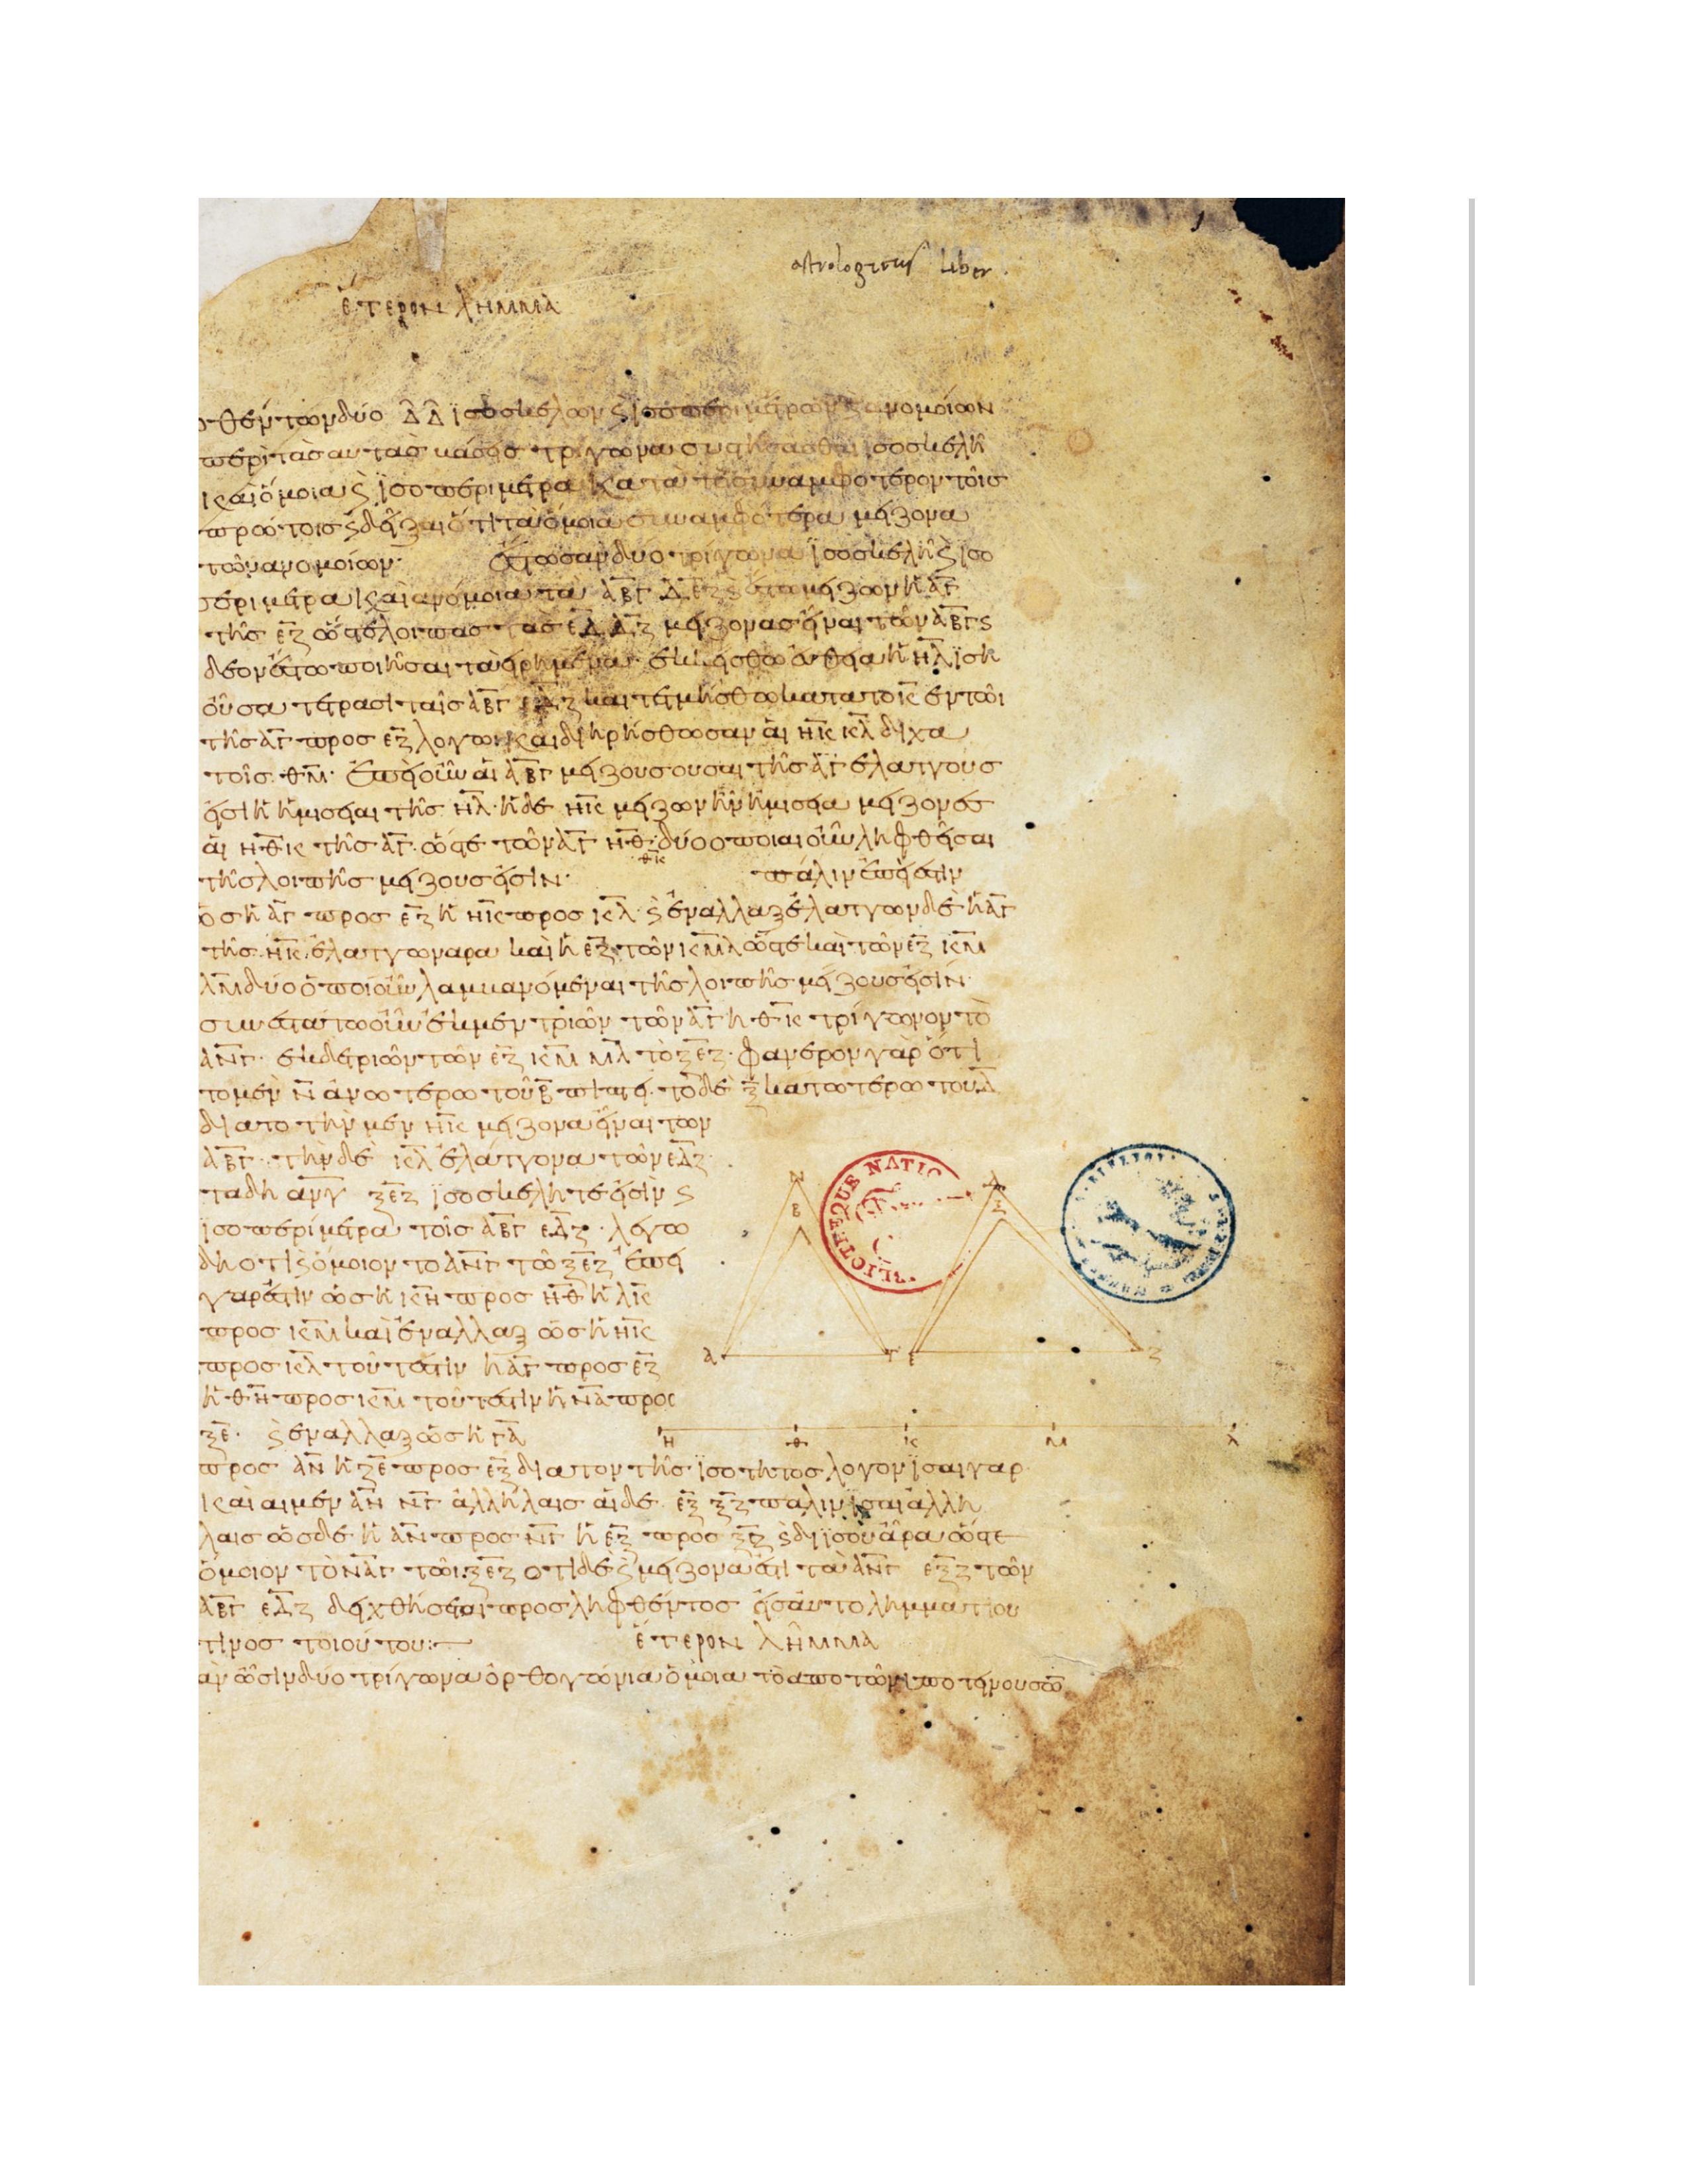 astrologicus liber
ἕτερον λῆμμα
δοθέντων δύο Δ Δ ἰσοσκελῶν ϛ ἰσοπεριμέτρων ϛ ἀνομοίων
περὶ τὰς αὐτὰς βάσεις τρίγωνα συστήσασθαι ἰσοσκελῆ
καὶ ὅμοια ϛ ἰσοπεριμετρα κατὰ τὸ συναμφότερον τοῖς
πρώτοις ϛ δεῖξαι ὅτι τὰ ὅμοια συναμφότερα μείζονα
τῶν ἀνομοίων ἔστωσαν δύο τρίγωνα ἰσοσκελῆ ϛ ἰσο
περιμετρα καὶ ἀνόμοια τὰ ΑΒΓ ΔΕΖ ϛ ἔστω μείζων ἡ ΑΓ
τῆς ΕΖ ὥστε λοιπὰς τὰς ΕΔ ΔΖ μείζονας εἶναι τῶν ΑΒΓ ϛ
δέον ἔστω ποιῆσαι τὰ εἰρημένα ἐκκείσθω εὐθεῖα ἡ ΗΛ ἴση
οὖσα τέτρασι ταῖς ΑΒΓ ΕΔΖ καὶ τετμήσθω κατὰ τὸ Κ ἐν τῶι
τῆς ΑΓ προς ΕΖ λογωι καὶ διηρήσθωσαν αἱ ΗΚ ΚΛ διχα
τοῖς Θ Μ ἐπεὶ οὖν αἱ ΑΒΓ μείζους οὖσαι τῆς ΑΓ ἐλάττους
εἰσὶ ἢ ἡμισειαι τῆς ΗΛ ἡ δὲ ΗΚ μείζων ἢ ἡμισεια μείζονες
αἱ ΗΘΚ τῆς ΑΓ ὥστε τῶν ΑΓ ΗΘ ΘΚ δύο οποιαιοῦν ληφθεῖσαι
τῆς λοιπῆς μείζους εἰσίν πάλιν ἐπεί ἐστιν
ὡς ἡ ΑΓ προς ΕΖ ἡ ΗΚ προς ΚΛ ϛ ἐναλλαξ ἐλαττων δὲ ἡ ΑΓ
τῆς ΗΚ ἐλαττων αρα καὶ ἡ ΕΖ τῶν ΚΜΛ ὥστε καὶ τῶν ΕΖ ΚΜ
ΛΜ δύο ὁποιοιοῦν λαμβανόμεναι τῆς λοιπῆς μείζους εἰσίν
συνεστάτω οὖν ἐκ μεν τριῶν τῶν ΑΓ ΗΘΚ τρίγωνον τὸ
ΑΝΓ ἐκ δε τριῶν τῶν ΕΖ ΚΜ ΜΛ τὸ ΞΕΖ φανερον γὰρ ὅτι
το μεν Ν ἀνωτέρω τοῦ Β πιπτει το δὲ Ξ κατωτέρω του Δ
δια το τὴν μεν ΗΚ μείζονα εἶναι των
ΑΒΓ τὴν δὲ ΚΛ ἐλάττονα τῶν ΕΔΖ
τα δη ΑΝΓ ΞΕΖ ἰσοσκελη τέ εἰσιν ϛ
ἰσοπερίμετρα τοῖς ΑΒΓ ΕΔΖ λέγω
δη οτι ϛ ὅμοιον το ΑΝΓ τῶ ΞΕΖ ἐπεὶ
γαρ ἐστιν ὡς ἡ ΚΗ προς ΗΘ ἡ ΛΚ
προς ΚΜ καὶ ἐναλλαξ ὡς ἡ ΗΚ
προς ΚΛ τουτέστιν ἡ ΑΓ προς ΕΖ
ἡ ΘΗ προς ΚΜ τουτέστιν ἡ ΝΑ προς
ΞΕ ϛ ἐναλλαξ ὡς ἡ ΓΑ
προς ΑΝ ἡ ΖΕ προς ΕΞ δια τον τῆς ἰσοτητος λογον ἴσαι γαρ
καὶ αι μεν ΑΝ ΝΓ ἀλλήλαις αἱ δὲ ΕΞ ΞΖ παλιν ἴσαι ἀλλη
λαις ὡς δὲ ἡ ΑΝ προς ΝΓ ἡ ΕΞ προς ΞΖ ϛ δι ἴσου ἄρα ὥστε
ὅμοιον τὸ ΝΑΓ τῶι ΞΕΖ οτι δὲ ϛ μείζονα ἐστι τὰ ΑΝΓ ΕΞΖ τῶν
ΑΒΓ ΕΔΖ δειχθήσεται προσληφθέντος εἰσαῦ το λημματιου
τινος τοιούτου:
ἕτερον λῆμμα
ἂν ὦσιν δυο τρίγωνα ὀρθογώνια ὅμοια τὸ απο τῶν ὑποτεινουσῶν
Ν
Β
Δ
Ξ
Α
Γ
Ε
Ζ
Η
Θ
Κ
Μ
Λ